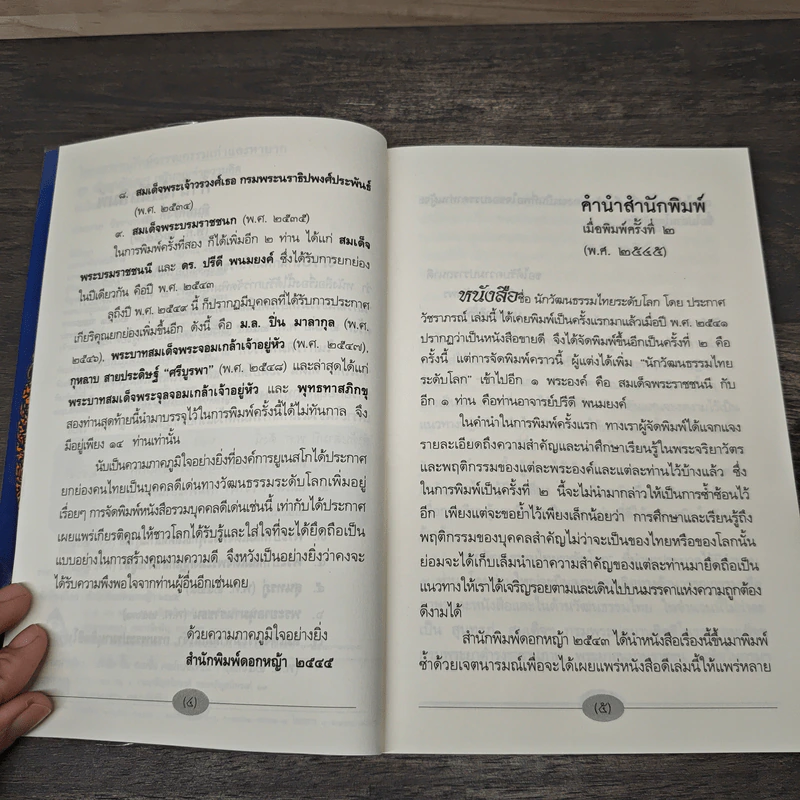 ๘. สมเด็จพระเจ้าวรวงศ์เธอ กรมพระนราธิปพงศ์ประพันธ์
(พ.ศ. ๒๕๓๔)
๙. สมเด็จพระบรมราชชนก (พ.ศ. ๒๕๓๕)
ในการพิมพ์ครั้งที่สอง ก็ได้เพิ่มอีก ๒ ท่าน ได้แก่ สมเด็จ
พระบรมราชชนนี และ ดร. ปรีดี พนมยงค์ ซึ่งได้รับการยกย่อง
ในปีเดียวกัน คือปี พ.ศ. ๒๕๔๓
ลุถึงปี พ.ศ. ๒๕๔๔ นี้ ก็ปรากฏมีบุคคลที่ได้รับการประกาศ
เกียรติคุณยกย่องเพิ่มขึ้นอีก ดังนี้ คือ ม.ล. ปิ่น มาลากุล (พ.ศ.
๒๕๔๖), พระบาทสมเด็จพระจอมเกล้าเจ้าอยู่หัว (พ.ศ. ๒๕๔๗),
กุหลาบ สายประดิษฐ์ “ศรีบูรพา” (พ.ศ. ๒๕๔๘) และล่าสุดได้แก่
พระบาทสมเด็จพระจุลจอมเกล้าเจ้าอยู่หัว และ พุทธทาสภิกขุ
สองท่านสุดท้ายนี้นำมาบรรจุไว้ในการพิมพ์ครั้งนี้ได้ไม่ทันกาล จึง
มีอยู่เพียง ๑๔ ท่านเท่านั้น
นับเป็นความภาคภูมิใจอย่างยิ่งที่องค์การยูเนสโกได้ประกาศ
ยกย่องคนไทยเป็นบุคคลดีเด่นทางวัฒนธรรมระดับโลกเพิ่มอยู่
เรื่อยๆ การจัดพิมพ์หนังสือรวมบุคคลดีเด่นเช่นนี้ เท่ากับได้ประกาศ
เผยแพร่เกียรติคุณให้ชาวโลกได้รับรู้และใส่ใจที่จะได้ยึดถือเป็น
แบบอย่างในการสร้างคุณงามความดี จึงหวังเป็นอย่างยิ่งว่าคงจะ
ได้รับความพึงพอใจจากท่านผู้อื่นอีกเช่นเคย
ด้วยความภาคภูมิใจอย่างยิ่ง
สำนักพิมพ์ดอกหญ้า ๒๕๔๕
(๔)
คำนำสำนักพิมพ์
เมื่อพิมพ์ครั้งที่ ๒
(พ.ศ. ๒๕๔๕)
หนังสือชื่อ นักวัฒนธรรมไทยระดับโลก โดย ประกาศ
วัชราภรณ์ เล่มนี้ ได้เคยพิมพ์เป็นครั้งแรกมาแล้วเมื่อปี พ.ศ. ๒๕๔๑
ปรากฏว่าเป็นหนังสือขายดี จึงได้จัดพิมพ์ขึ้นอีกเป็นครั้งที่ ๒ คือ
ครั้งนี้ แต่การจัดพิมพ์คราวนี้ ผู้แต่งได้เพิ่ม “นักวัฒนธรรมไทย
ระดับโลก” เข้าไปอีก ๑ พระองค์ คือ สมเด็จพระราชชนนี กับ
อีก ๑ ท่าน คือท่านอาจารย์ปรีดี พนมยงค์
ในคำนำในการพิมพ์ครั้งแรก ทางเราผู้จัดพิมพ์ได้แจกแจง
รายละเอียดถึงความสำคัญและน่าศึกษาเรียนรู้ในพระจริยาวัตร
และพฤติกรรมของแต่ละพระองค์และแต่ละท่านไว้บ้างแล้ว ซึ่ง
ในการพิมพ์เป็นครั้งที่ ๒ นี้จะไม่นำมากล่าวให้เป็นการซ้ำซ้อนไว้
อีก เพียงแต่จะขอย้ำไว้เพียงเล็กน้อยว่า การศึกษาและเรียนรู้ถึง
พฤติกรรมของบุคคลสำคัญไม่ว่าจะเป็นของไทยหรือของโลกนั้น
ย่อมจะได้เก็บเล็มนำเอาความสำคัญของแต่ละท่านมายึดถือเป็น
แนวทางให้เราได้เจริญรอยตามและเดินไปบนมรรคาแห่งความถูกต้อง
ดีงามได้
สำนักพิมพ์ดอกหญ้า ๒๕๔๓ ได้นำหนังสือเรื่องนี้ขึ้นมาพิมพ์
ซ้ำด้วยเจตนารมณ์เพื่อจะได้เผยแพร่หนังสือดีเล่มนี้ให้แพร่หลาย
(๕)